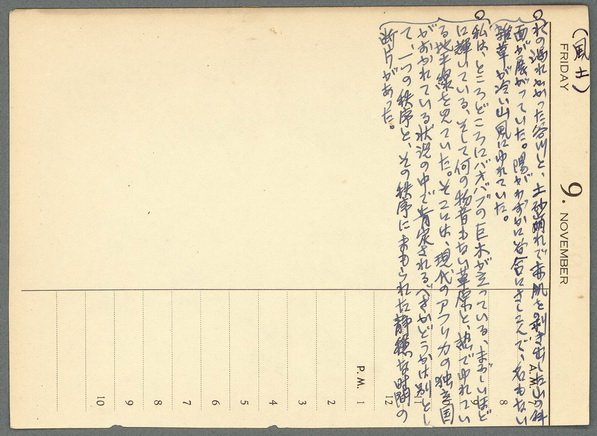 (風土)
FRIDAY 9. NOVEMBER
○水の涸れかかった谷川と、土砂崩れで赤肌を剥き出した山の斜
面が展がっていた。陽がわずかに谷合にさしこんで、名もない
雑草が冷い山風にゆれていた。
○私は、ところどころにバオバブの巨木が立っている、まぶしいほど
に輝いている、そして何の物音もない草原と、熱でゆれてい
る地平線を見ていた。そこには、現代のアフリカの独立国
がおかれている状況の中で肯定されるべきかどうかは別とし
て、一つの秩序と、その秩序にまもられた静穏な時間の
断片があった。
A.M.
8
12
P.M. 1
2
3
4
5
6
7
8
9
10